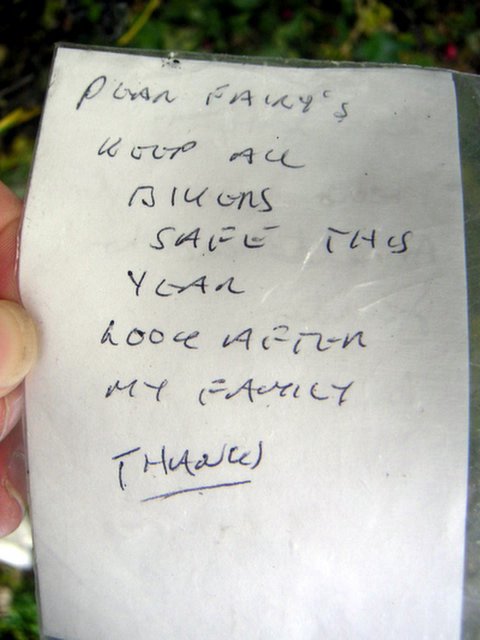 DEAR FAIRY'S
KEEP ALL
BIKERS
SAFE THIS
YEAR
LOOK AFTER
MY FAMILY
THANKS